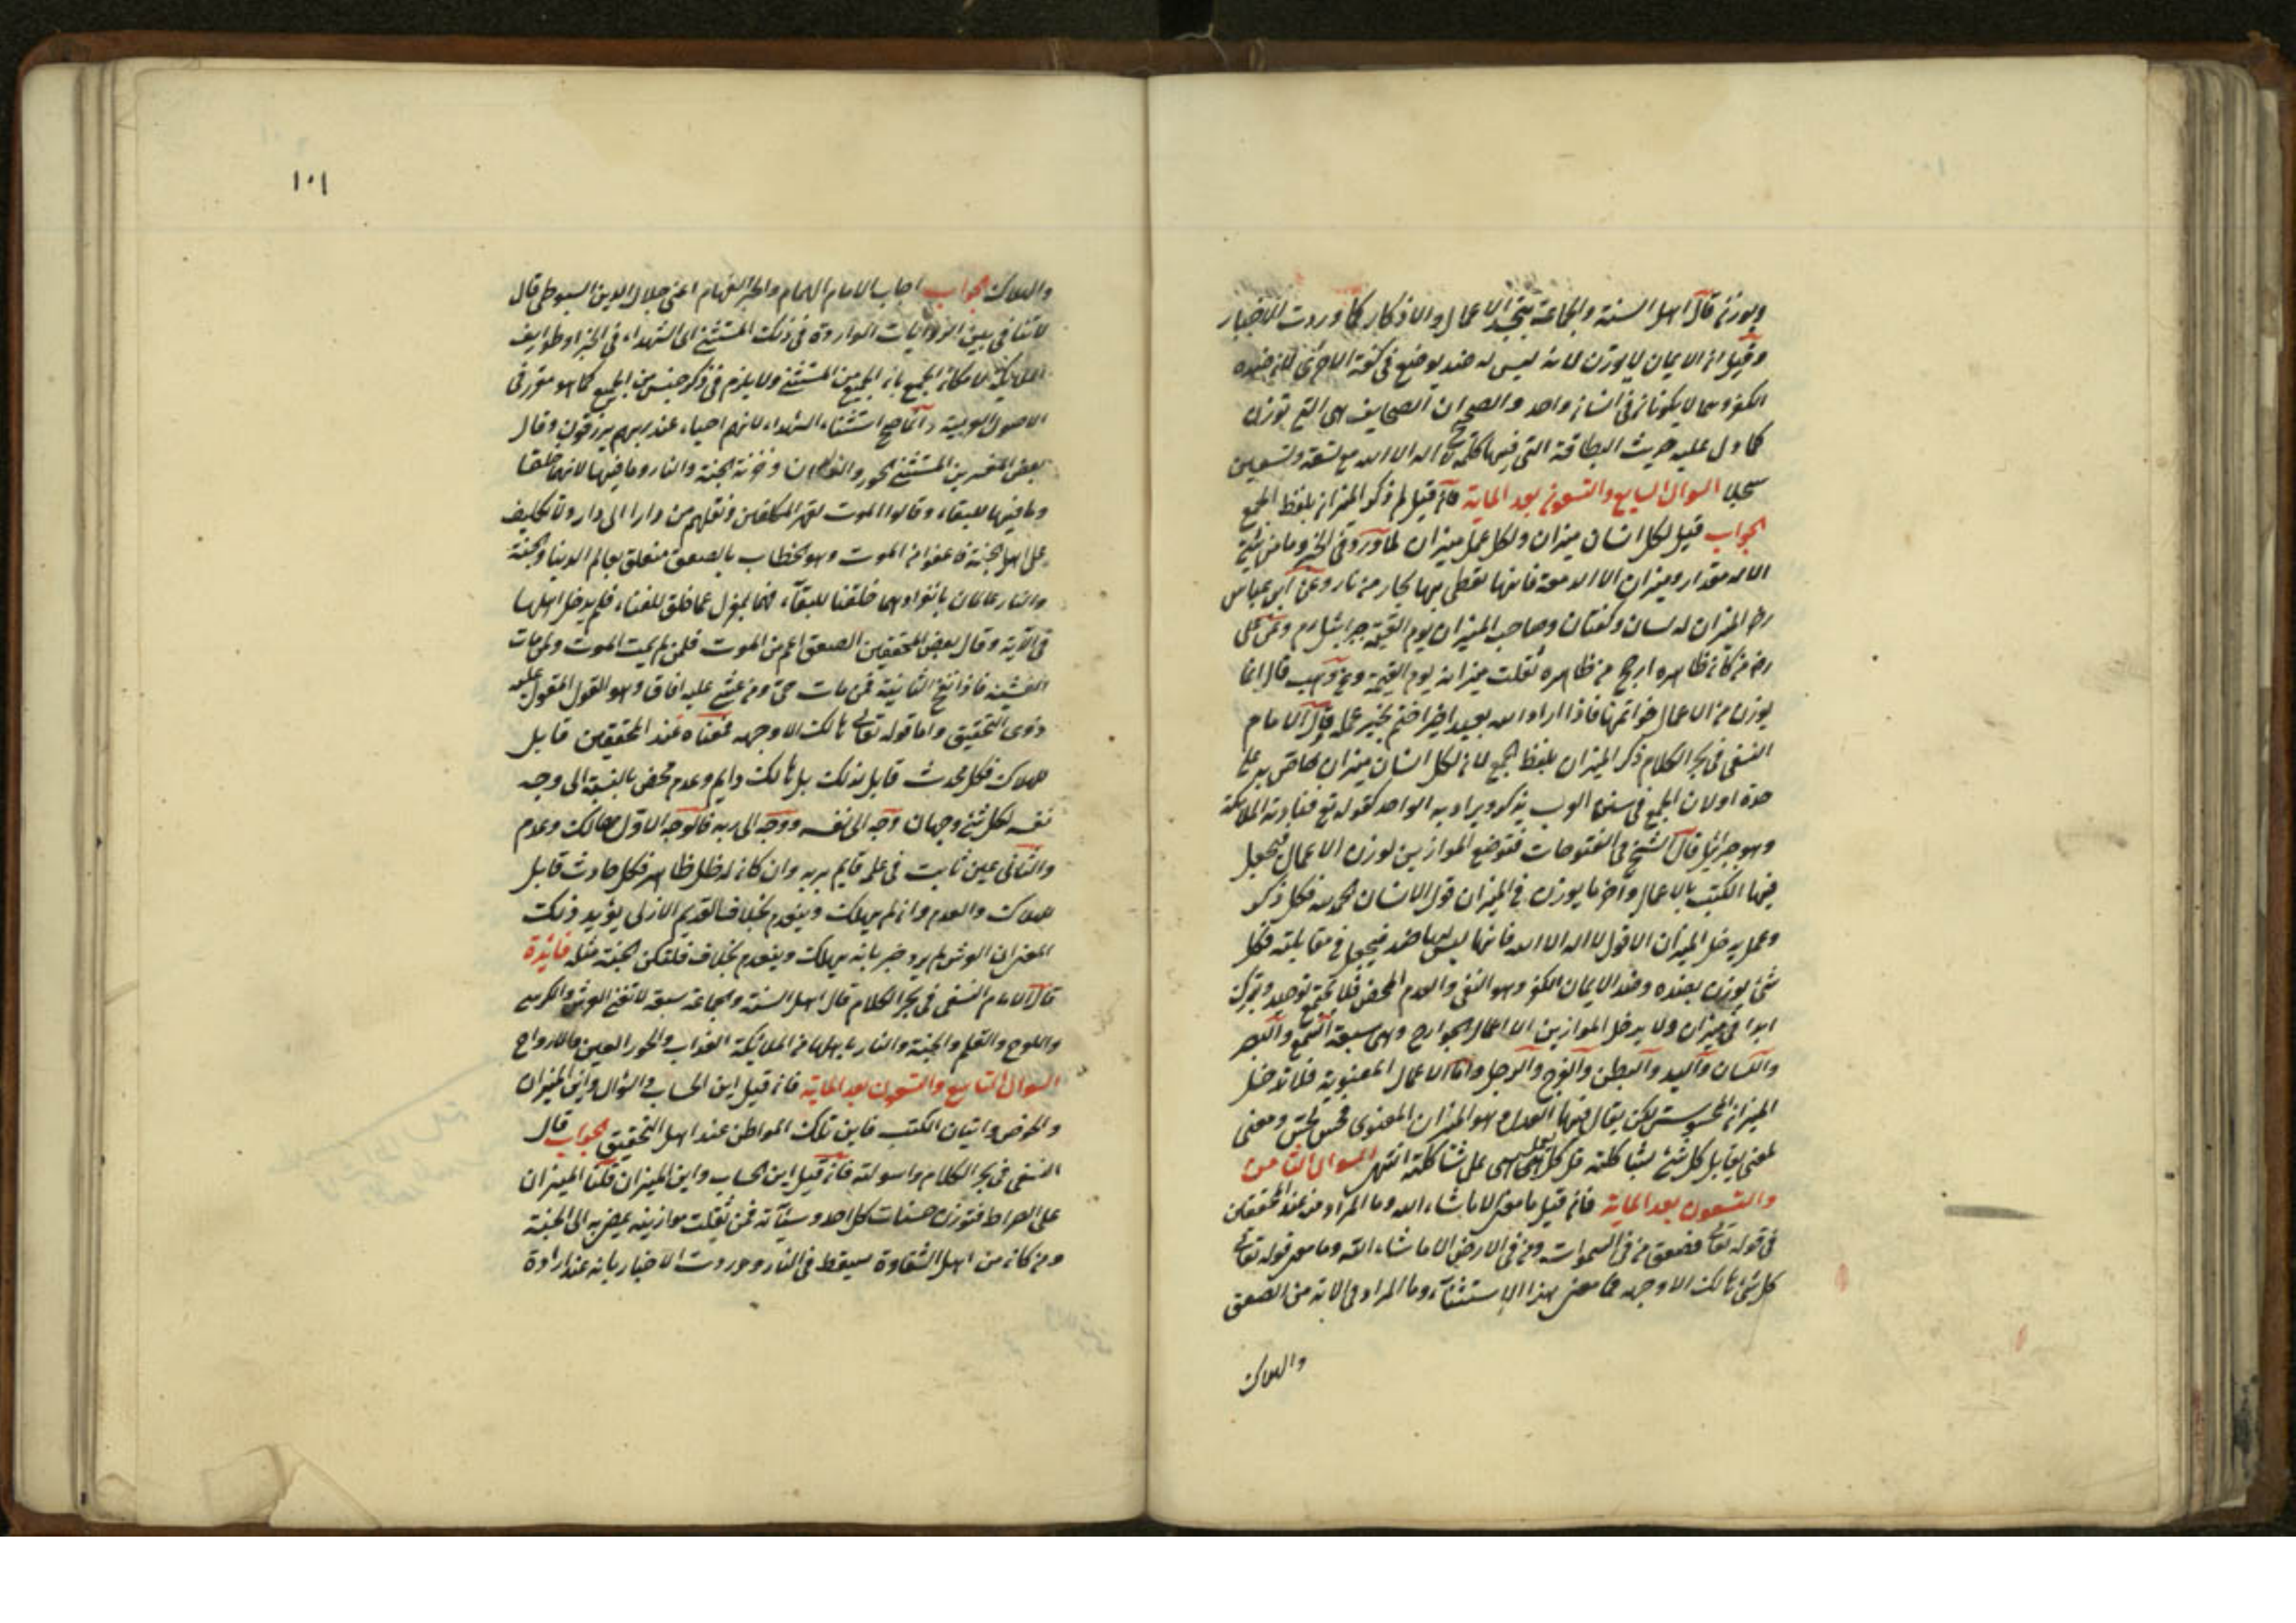 ويوزن قال اهل السنة والجماعة بتجسد الاعمال والاذكار كما وردت الاخبار
وقيل ان الايمان لا يوزن لانه ليس له ضد يوضع في كفة الاخرى لان ضده
الكفر وهما لا يكونان في انسان واحد والصحيح ان الصحايف هي التي توزن
كما دل عليه حديث البطاقة التي فيها كلمة لا اله الا الله مع تسعة وتسعين
سجلا السوال السابع والتسعون بعد الماية فان قيل لم ذكر الميزان بلفظ الجمع
الجواب قيل لكل انسان ميزان ولكل عمل ميزان لما ورد في الخبر وما من شئ
الا له مقدار وميزان الا الدمعة فانها تطفى بها بحار من نار وعن ابن عباس
رض الميزان له لسان وكفتان وصاحب الميزان يوم القيمة جبرائيل م وعن علي
رض من كان ظاهره ارجح من ظاهره ثقلت ميزانه يوم القيمة وعن وهب قال انما
يوزن من الاعمال خواتمها فاذا اراد الله بعبد خيرا ختم بخير عمله وقال الامام
النسفي في بحر الكلام ذكر الميزان بلفظ الجمع لان لكل انسان ميزان خاص به على
حدة او لان الجمع في سنة العرب يذكر ويراد به الواحد كقوله تع فنادته الملائكة
وهو جبرائيل قال الشيخ في الفتوحات فتوضع الموازين لوزن الاعمال فيجعل
فيها الكتب بالاعمال واخر ما يوزن في الميزان قول الانسان الحمد لله فكل ذكر
وعمل يدخل الميزان الا قول لا اله الا الله فانها ليس لها ضد فيجعل في مقابلته فكل
شئ يوزن بضده وضد الايمان الكفر وهو النفى والعدم المحض فلا يجتمع توحيد وشرك
ابدا في ميزان ولا يدخل الموازين الا اعمال الجوارح وهي سبعة السمع والبصر
واللسان واليد والبطن والفرج والرجل واما الاعمال المعنوية فلا تدخل
الميزان المحسوس لكن يقال فيها العدل وهو الميزان المعنوي فحس لحس ومعنى
لمعنى يقابل كل شئ بشاكلته قل كل يعمل على شاكلته انتهى السوال الثامن
والتسعون بعد الماية فان قيل ما معنى الا ما شاء الله وما المراد منه عند المحققين
في قوله تعالى فصعق من في السموات ومن في الارض الا ما شاء الله وما معنى قوله تعالى
كل شئ هالك الا وجهه فما معنى هذا الاستثناء وما المراد في الاية من الصعق
والهلاك
١٠١
والهلاك الجواب اجاب الامام الهمام والحبر الفهام اعنى جلال الدين السيوطي قال
لا تنافي بين الروايات الواردة في ذلك المستثنى اى الشهداء في الخبر او طوايف
الملايكة لامكان الجمع بان الجميع من المستثنى ولا يلزم في ذكر جنس من الجميع كما هو مقرر في
الاصول العربية وانما صح استثناء الشهداء لانهم احياء عند ربهم يرزقون وقال
بعض المفسرين المستثنى الحور والغلمان وخزنة الجنة والنار وما فيها لانهما خلقا
وما فيها للبقاء وقالوا الموت لقهر المكلفين ونقلهم من دار الى دار ولا تكليف
على اهل الجنة فاعفوا من الموت وهو الخطاب بالصعق متعلق بعالم الدنيا والجنة
والنار عالمان بانفرادهما خلقتا للبقاء فهما بمعزل عما خلق للفناء فلم يدخل اهلها
في الآية وقال بعض المحققين الصعق اعم من الموت فلمن لم يمت الموت ولمن مات
الغشية فاذا نفخ الثانية فمن مات حي ومن غشي عليه افاق وهو القول المقول عليه
ذوى التحقيق واما قوله تعالى هالك الا وجهه فمعناه عند المحققين قابل
للهلاك فكل محدث قابل لذلك بل هالك دايم وعدم محض بالنسبة الى وجه
نفسه لكل شئ وجهان وجه الى نفسه ووجه الى ربه فالوجه الاول هالك وعدم
والثاني عين ثابت في علمه قايم بربه وان كان له ظل ظاهر فكل حادث قابل
للهلاك والعدم وان لم يهلك وينعدم بخلاف القديم الازلى يؤيد ذلك
المعنى ان العرش لم يرد خبر بانه يهلك وينعدم بخلاف فلتكن الجنة مثله فائدة
قال الامام النسفي في بحر الكلام قال اهل السنة والجماعة سبعة لا تفنى العرش والكرسي
واللوح والقلم والجنة والنار باهلهما من ملايكة العذاب والحور العين والارواح
السوال التاسع والتسعون بعد الماية فان قيل اين الحساب والسوال واين الميزان
والحوض واتيان الكتب فاين تلك المواطن عند اهل التحقيق الجواب قال
النسفي في بحر الكلام واسولته فان قيل اين الحساب واين الميزان قلنا الميزان
على الصراط فتوزن حسنات كل احد وسيئاته فمن ثقلت موازينه يمضى به الى الجنة
ومن كان من اهل الشقاوة سيقط في النار ووردت الاخبار بانه عند ارادة